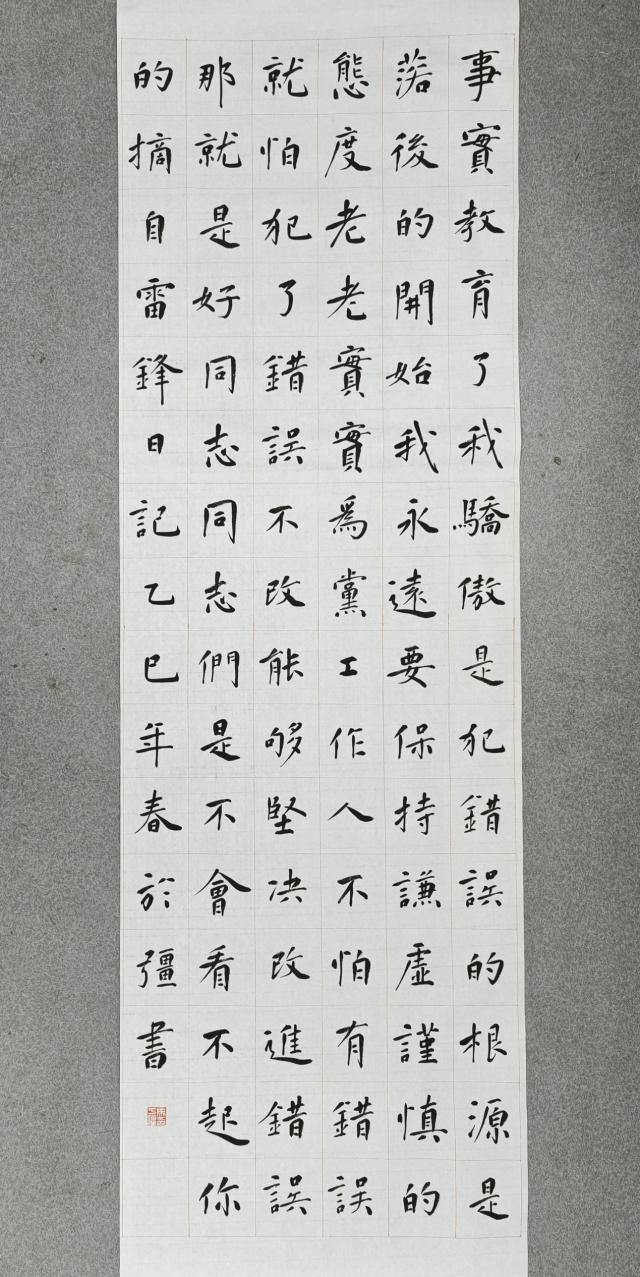 事實教育了我驕傲是犯錯誤的根源是
落後的開始我永遠要保持謙虛謹慎的
態度老老實實爲黨工作人不怕有錯誤
就怕犯了錯誤不改能够堅决改進錯誤
那就是好同志同志們是不會看不起你
的摘自雷鋒日記乙巳年春於彊書